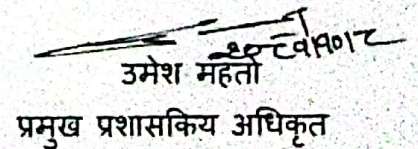 उमेश महतो
प्रमुख प्रशासकिय अधिकृत